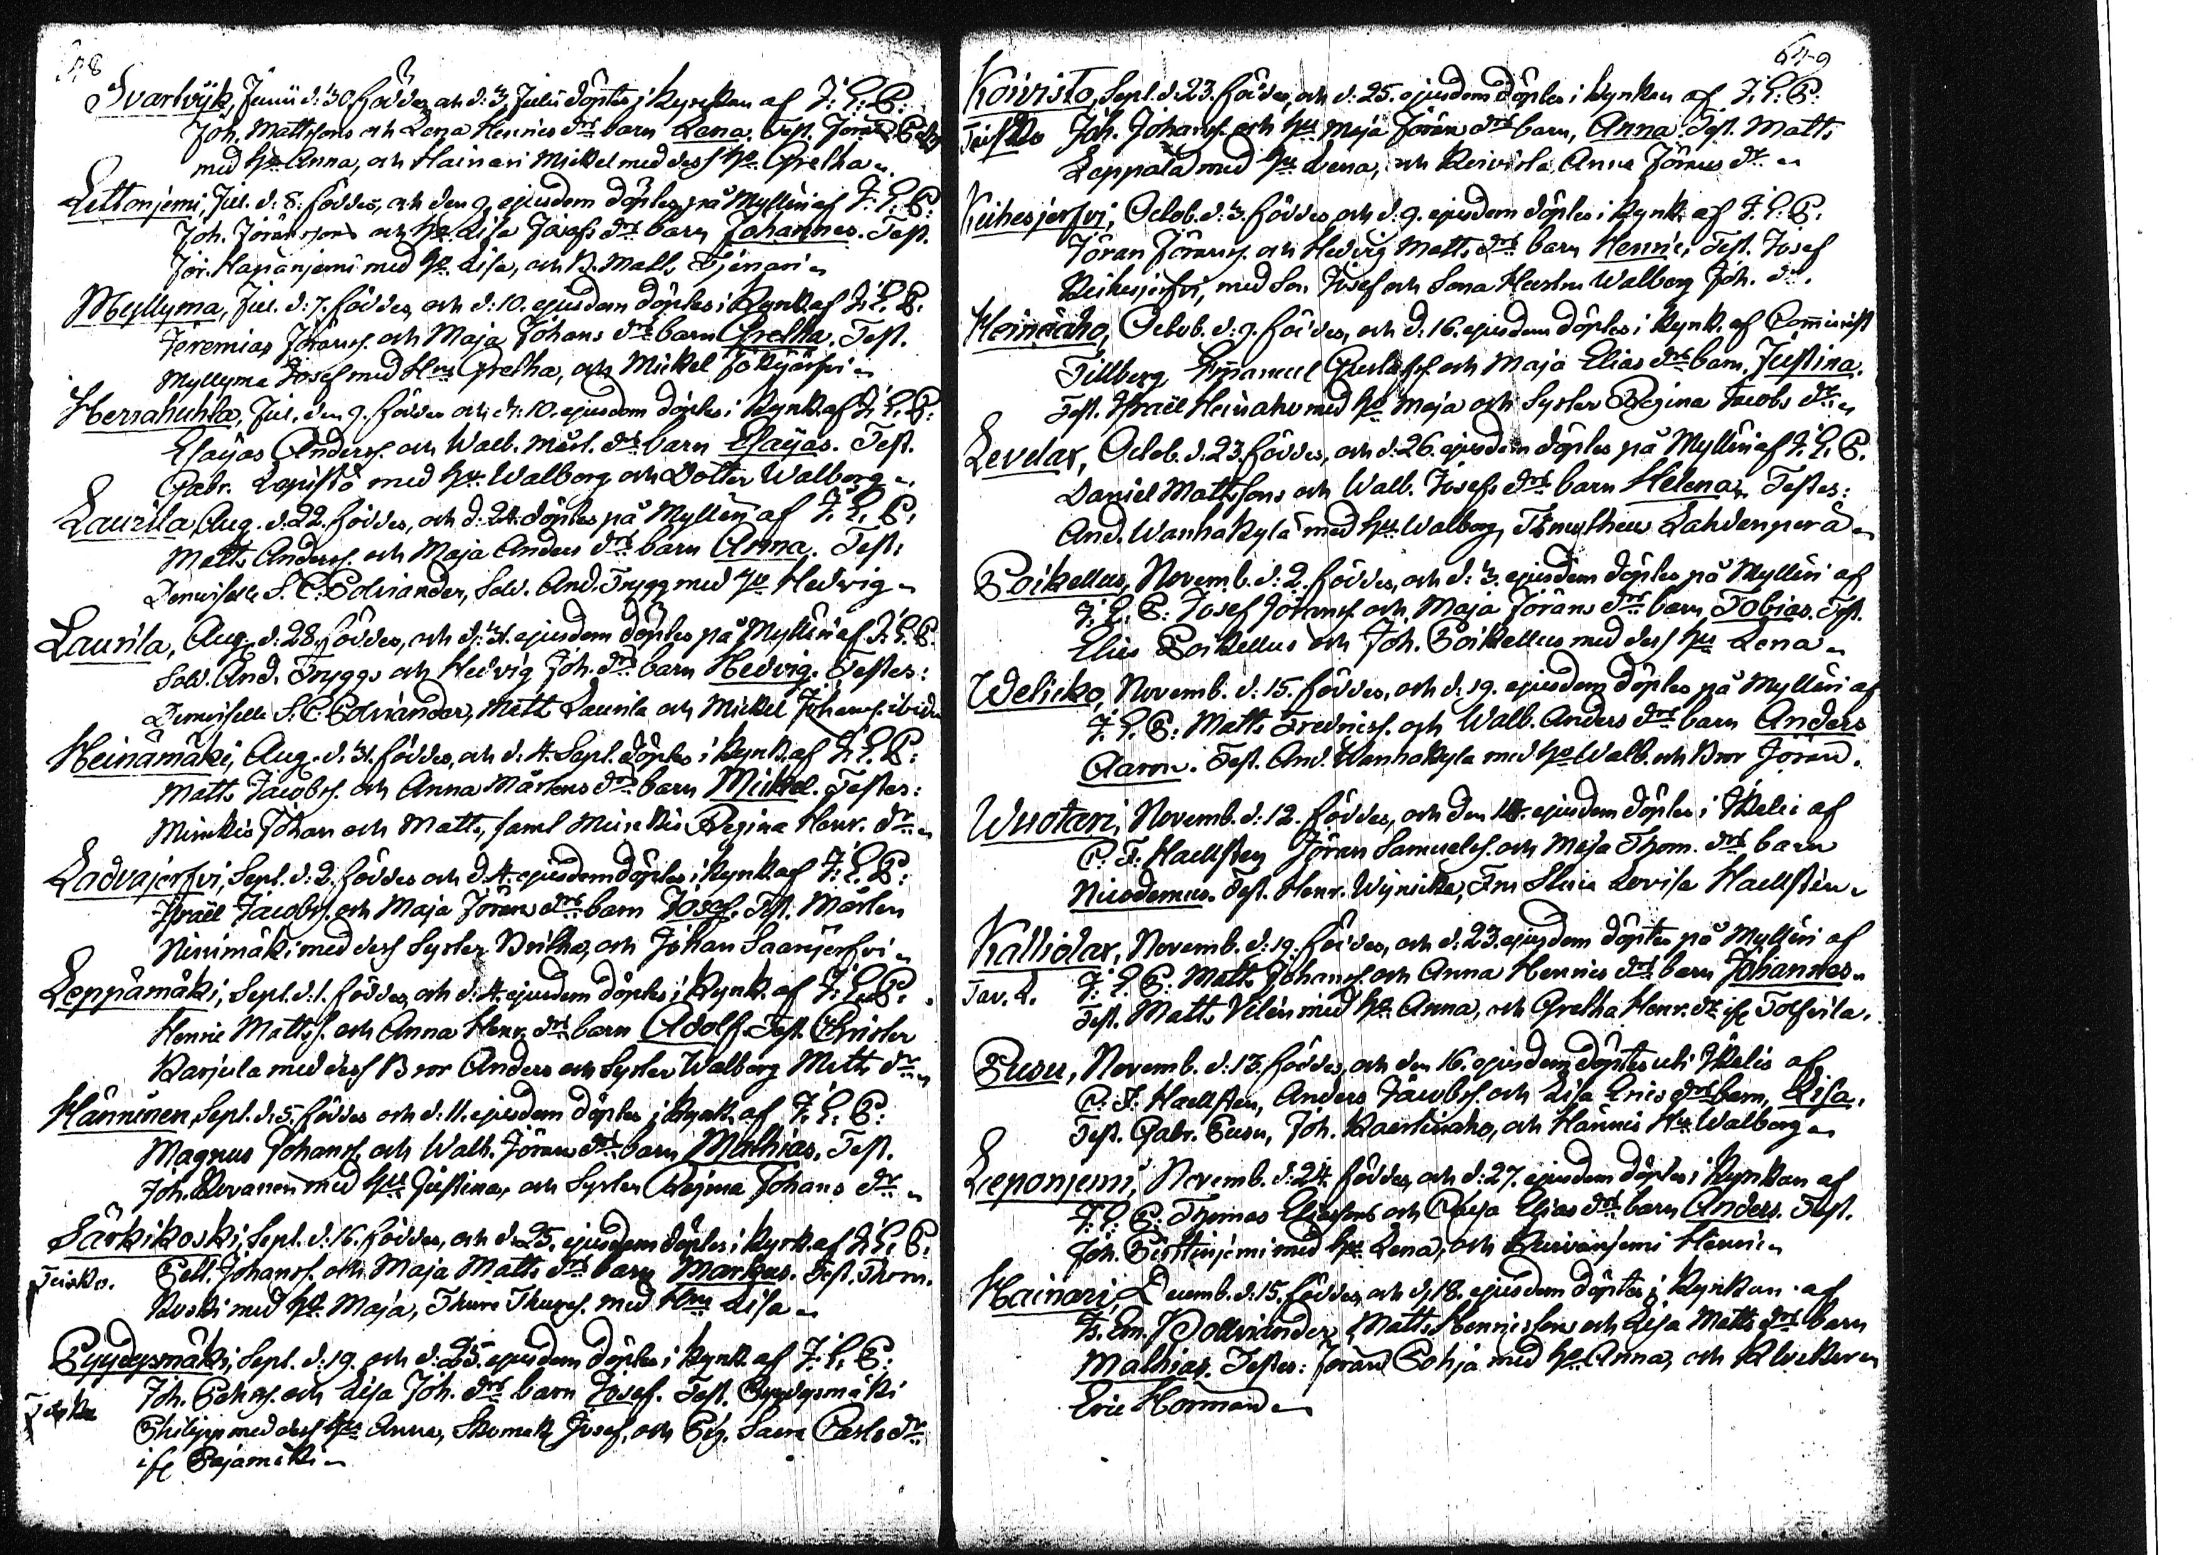 48
Svartvijk, Junii d: 30 föddes och d: 3. Julii döptes i Kyrckan af J: E: P:
Joh. Mattssons och Lena Henrics drs barn Lena. Test. Jöran
med hu Anna, och Hainari Mickel med dess hu Gretha
Lettonjemi, Jul. d: 8. föddes, och den 9. ejusdem döptes på Myllin af J: E: P:
Joh. Jöranssons och hu Lisa Josefs drs barn Johannes. Test.
Jör. Hapanjemi med hu Lisa, och B. Matts
Myllyma, Jul. d: 7. föddes, och d: 10. ejusdem döptes i Kyrk. af J: E: P:
Jeremias Jöranss. och Maja Johans drs barn Gretha. Test.
Myllyma Josef med Hru Gretha, och Mickel Jokijärfvi
Herrahuhta, Jul. den 9. föddes och d: 10. ejusdem döptes i Kyrk. af J: E: P:
Elayas Anderss. och Walb. Mårt. drs barn Elayas. Test.
Gabr. Lepistö med hu Walborg och Dotter Walborg
Laurila, Aug. d: 22. föddes, och d: 24. döptes på Myllin af J: E: P:
Matts Anderss. och Maja Anders drs barn Anna. Test:
Demiselle S. C. Polviander, Sold. And. Trygg med hu Hedvig
Laurila, Aug. d: 28 föddes, och d: 31. ejusdem döptes på Myllin af J: E: P:
Sold. And. Tryggs och Hedvig Joh. drs barn Hedvig. Testes:
Demiselle S. C. Polviander, Matt Laurila och Mickel Johanss. ibid.
Heinämäki, Aug. d: 31. föddes, och d. 4. Sept. döptes i Kyrk. af J: E: P:
Matts Jacobss. och Anna Mårtens drs barn Mickel. Testes:
Minckis Johan och Matts, samt Minckis Regina Henr. dr.
Ladvajerfvi, Sept. d: 2. föddes och d. 4. ejusdem döptes i Kyrk. af J: E: P:
Israël Jacobss. och Maja Jörans drs barn Josef. Test. Mårten
Ninimäki med dess Syster Britha, och Johan Saarijerfvi
Leppämäki, Sept. d. 1. föddes, och d: 4. ejusdem döptes i Kyrk. af J: E: P:
Henric Mattss. och Anna Henr. drs barn Adolf. Test. Christer
Karjula med dess Bror Anders och Syster Walborg Matts dr.
Hänninen, Sept. d. 5. föddes och d: 11. ejusdem döptes i Kyrk. af J: E: P:
Magnus Johanss. och Walb. Jörans drs barn Mathias. Test.
Joh. med hu Justina, och Syster Regina Johans dr.
Särkikoski, Sept. d: 16. föddes, och d: 25. ejusdem döptes i Kyrk. af J: E: P:
Teisko. Johanss. och Maja Matts drs barn Markus. Test. Thom.
Koski med hu Maja, Thure Thuress. med Hru Lisa
Pyydysmäki, Sept. d: 19. och d: 25. ejusdem döptes i Kyrk. af J: E: P:
Joh. och Lisa Joh. drs barn Josef. Test. Pyydysmäki
Teisko Philipp med dess hu Anna, Josef, och Pig. Saara Carls dr.
ifr. Pajamäki
649
Koivisto, Sept. d. 23. föddes, och d: 25. ejusdem döptes i kyrkan af J: E: P:
Teisko Joh. Johanss. och hu Maja Jöran drs barn, Anna. Test. Matts
Leppala med hu Lena, och Koivisto Anna Jörans dr.
Keihesjerfvi, Octob. d: 3. föddes, och d: 9. ejusdem döptes i kyrk. af J: E: P:
Jöran Jöranss. och Hedvig Matts drs barn Henric. Test. Josef
Keihesjerfvi, med Son Josef och Walborg Joh. dr.
Heinäaho, Octob. d. 9. föddes, och d: 16. ejusdem döptes i Kyrk. af Comminist
Tillberg Emanuel Gustafss. och Maja Elias drs barn. Justina.
Test. Israël Heinaho med hu Maja och Syster Regina Jacobs dr.
Levelax, Octob. d. 23. föddes, och d: 26. ejusdem döptes på Myllin af J: E: P:
Daniel Mattssons och Walb. Josefs drs barn Helena. Testes:
And. Wanhakylä med hu Walborg, Timotheus Lahdenperä
Poikellus, Novemb. d: 2. föddes, och d: 3. ejusdem döptes på Myllin af
J: E: P: Josef Jöranss. och Maja Jörans drs barn Tobias. Test.
Elias Poikellus och Joh. Poikellus med dess hu Lena
Welicko, Novemb. d: 15. föddes, och d: 19. ejusdem döptes på Myllin af
J: E: P: Matts Fredricss. och Walb. Anders drs barn Anders
Aaron. Test. And. Wanhakyla med hu Walb. och Bror Jöran.
Wuotari, Novemb. d: 12. föddes, och den 14. ejusdem döptes i Ikalis af
C: F: Haellsten Jöran Samuelss. och Maja Thom. drs barn
Nicodemus. Test. Henr. Wijnicka, Fru Lovisa Haellsten
Kalliolax, Novemb. d: 19. föddes, och d: 23. ejusdem döptes på Myllin af
J: E: P: Matts Johanss. och Anna Henrics drs barn Johannes
Tav. K. Test. Matts Vilén med hu Anna, och Gretha Henr. dr. ifr. Tolfvila.
Pusu, Novemb. d: 13. föddes, och den 16. ejusdem döptes uti Ikalis af
C: F: Haellsten, Anders Jacobss. och Lisa Erics drs barn, Lisa.
Test. Gabr. Pusu, Joh. Kaertinaho, och Hännis Hu Walborg
Leponjemi, Novemb. d: 24. föddes, och d: 27. ejusdem döptes i Kyrkan af
J: E: P: Thomas Eliassons och Caisa Elias drs barn Anders. Test.
Joh. med hu Lena, och Koivunjemi Henric
Hainari, Decemb. d: 15. föddes, och d. 18. ejusdem döptes i Kyrkan af
Fr. Em. Pollviander Matts Henricsons och Lisa Matts drs barn
Mathias. Testes: Jöran Pohja med hu Anna, och Klockaren
Eric Homman